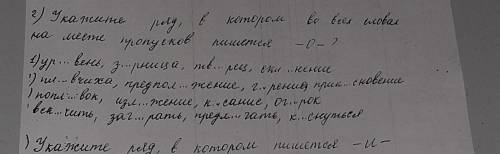 2) Укажите ряд, в котором во всех словах
на месте пропусков пишется -о- ?
1) ур...вень, з...рница, тв...рец, скл...нение
) пл...вчиха, предпол...жение, г...рение, прик...сновение
) попл...вок, изл...жение, к...сание, ог...рок
вск...чить, заг...рать, предл...гать, к...снуться
) Укажите ряд, в котором пишется -и-